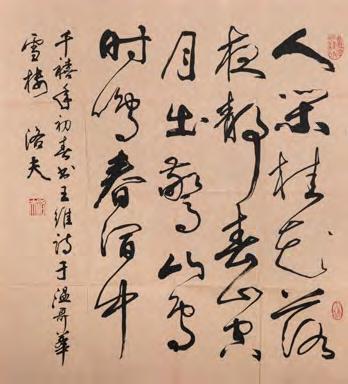 人闲桂花落
夜静春山空
月出惊山鸟
时鸣春涧中
千禧年初春书王维诗于温哥华
雪楼 洛夫